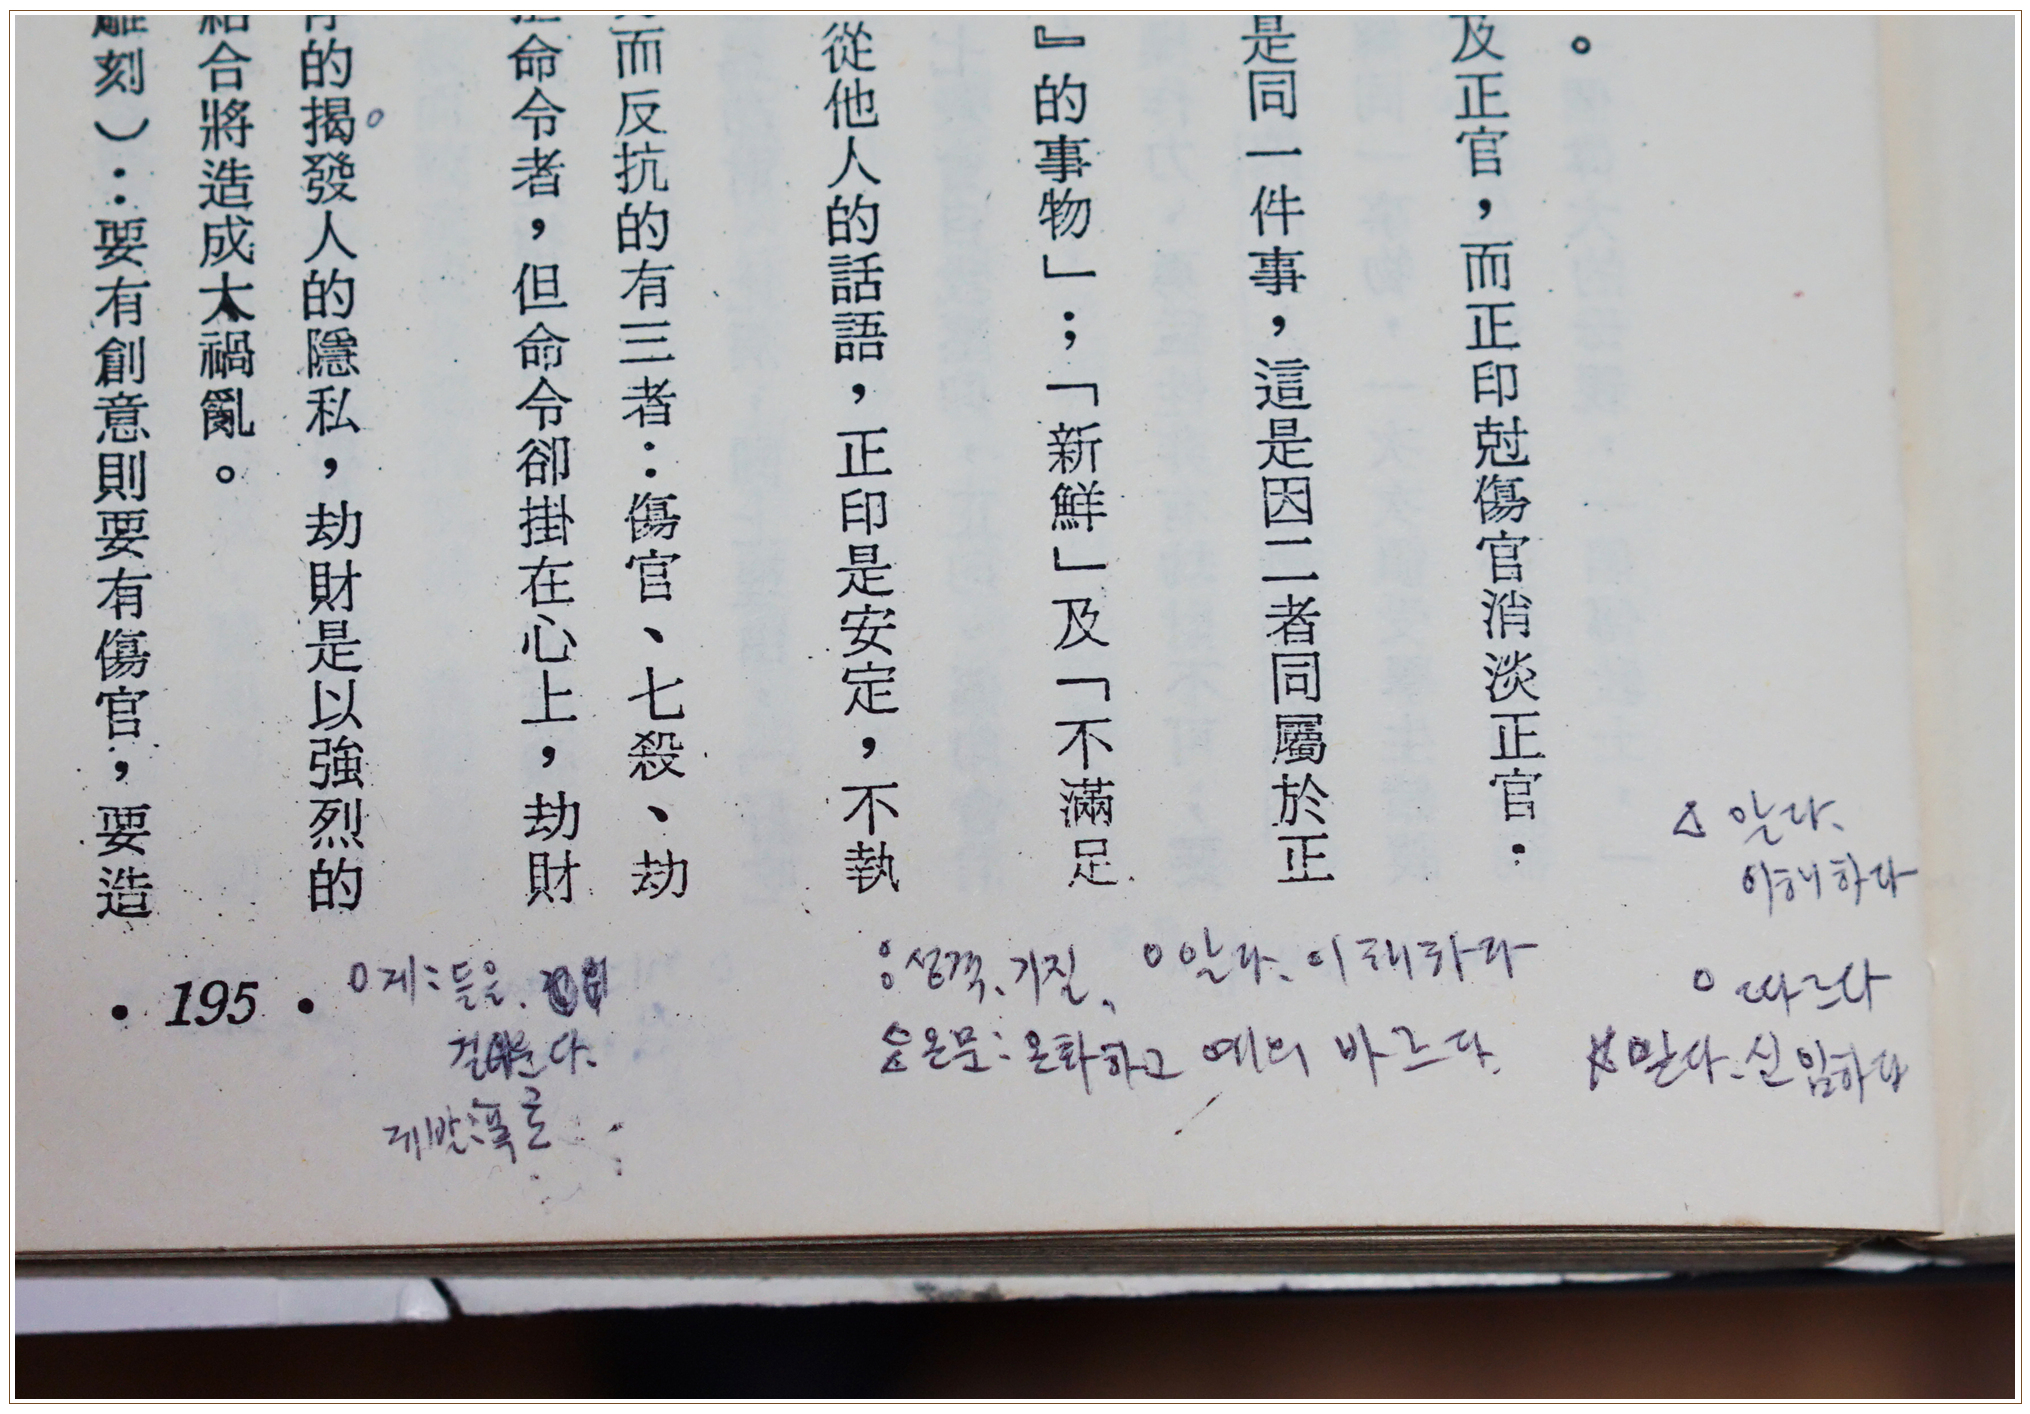 。
及正官，而正印尅傷官消淡正官．
是同一件事，這是因二者同屬於正
』的事物」；「新鮮」及「不滿足
從他人的話語，正印是安定，不執
而反抗的有三者：傷官、七殺、劫
命令者，但命令卻掛在心上，劫財
的揭發人的隱私，劫財是以強烈的
結合將造成大禍亂。
雕刻）：要有創意則要有傷官，要造
△ 알다、
이해하다
○ 따르다
맡다、신임하다
성격、기질、 ○알다、이해하다
온문: 온화하고 예의 바르다、
○게: 들을、
다、
게발:
• 195 •